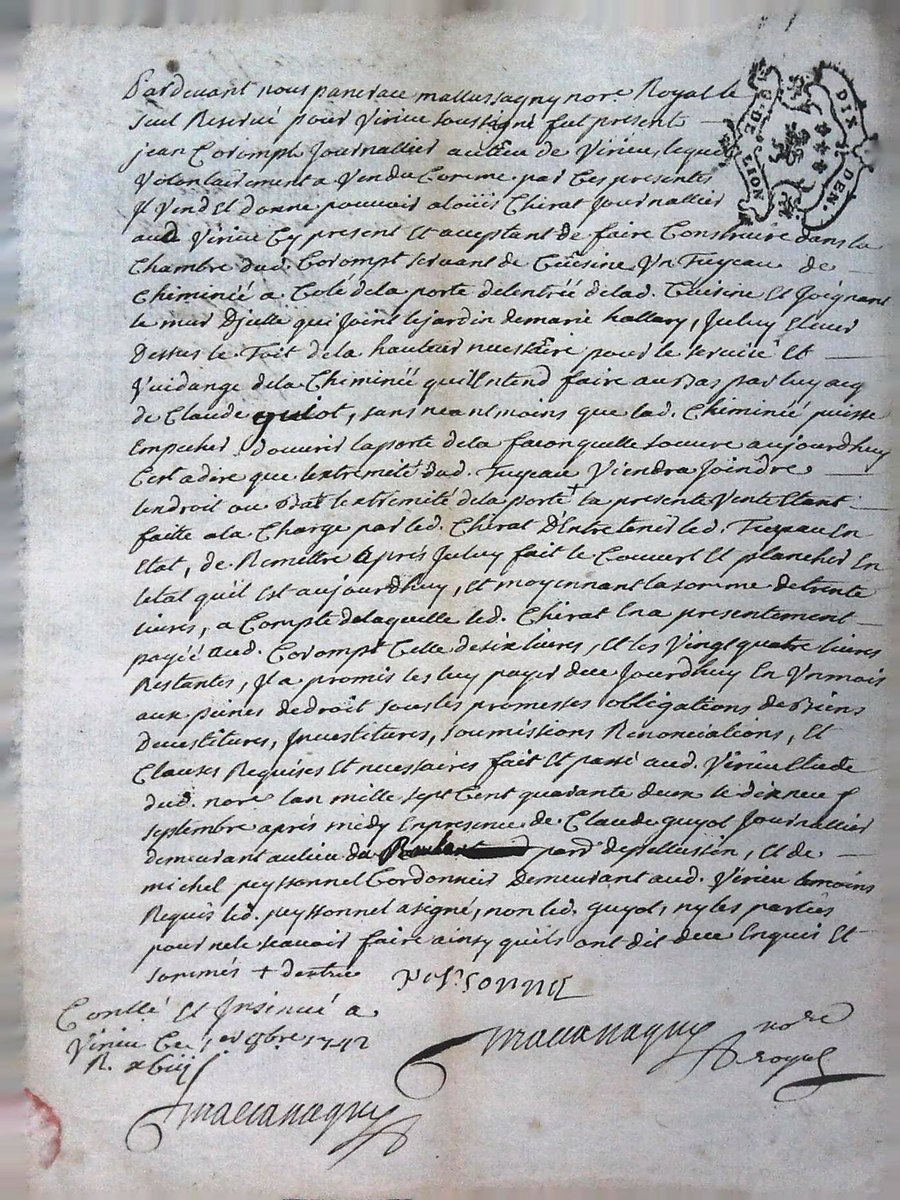 Pardevant nous pancrace mallassagny nore. Royal le
seul Reservé pour Virieu soussigné fut present
jean Corompt Journallier au lieu de Virieu, lequel
Volontairement a Vendu Comme par Ces presentes
Il Vend et donne pouvoir a loüis Chirat Journallier
aud Virieu Cy present et acceptant de faire Construire dans la
Chambre dud. Corompt servant de Cuisine Un Tuyeau de
Chiminée a Coté de la porte de lentrée de lad. Cuisine et Joignant
le mur Dicelle qui Joint le jardin de marie hallary, Iceluy Elever
dessus le Toit de la hauteur necessaire pour le service et
Vuidange de la Chiminée qu'il Entend faire au Bas par luy acq
de Claude guiot, sans neantmoins que lad. Chiminée puisse
Empecher douvrir la porte de la façon quelle souvre aujourdhuy
Cest a dire que lextremité dud. Tuyeau Viendra Joindre
lendroit ou Bat lextremité de la porte + la presente Vente Etant
faitte a la Charge par led. Chirat d'Entretenir led. Tuyeau En
Etat, de Remettre après Iceluy fait le Couvert et plancher En
letat quil est aujourdhuy, et moyennant la somme de trente
livres, a Compte de laquelle led. Chirat En a presentement
payée aud. Corompt Celle de six livres, et les Vingt quatre livres
Restantes, Il a promis les luy payer dece Jourdhuy En Un mois
aux peines de droit sous les promesses obligations de Biens
devestitures, Investitures, soumissions Renonciations, et
Clauses Requises et necessaires fait et passé aud. Virieu Etude
dud. nore lan mille sept Cent quarante deux le dixneuf
septembre après midy En presence de Claude guyot Journallier
demeurant au lieu du parr de pellussin, et de
michel peyssonnel Cordonnier Demeurant aud. Virieu temoins
Requis led. peyssonnel a signé, non led. guyot, ny les parties
pour ne le scavoir faire ainsy quils ont dit dece Enquis et
sommés +
peissonnel
Contllé et Insinué a
Virieu Ce 1er 8bre 1742
mallassagny nore
royal
mallassagny
G. DE LION
DIX DEN.